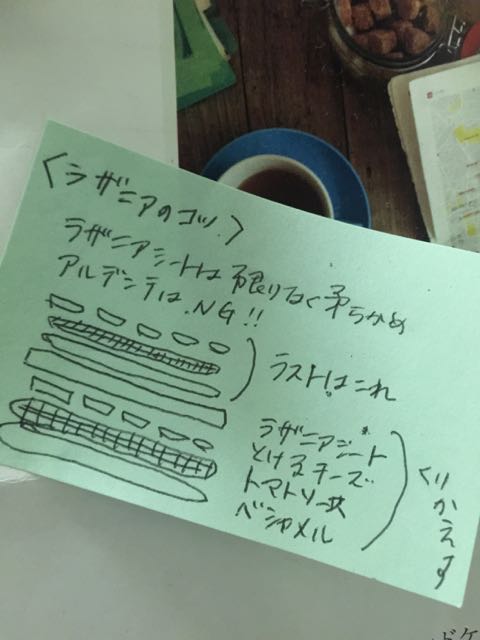 〈ラザニアのコツ.〉
ラザニアシートは限りなく柔らかめ
アルデンテは.NG!!
ラストはこれ
ラザニアシート
とけるチーズ
トマトソース
ベシャメル
くりかえす